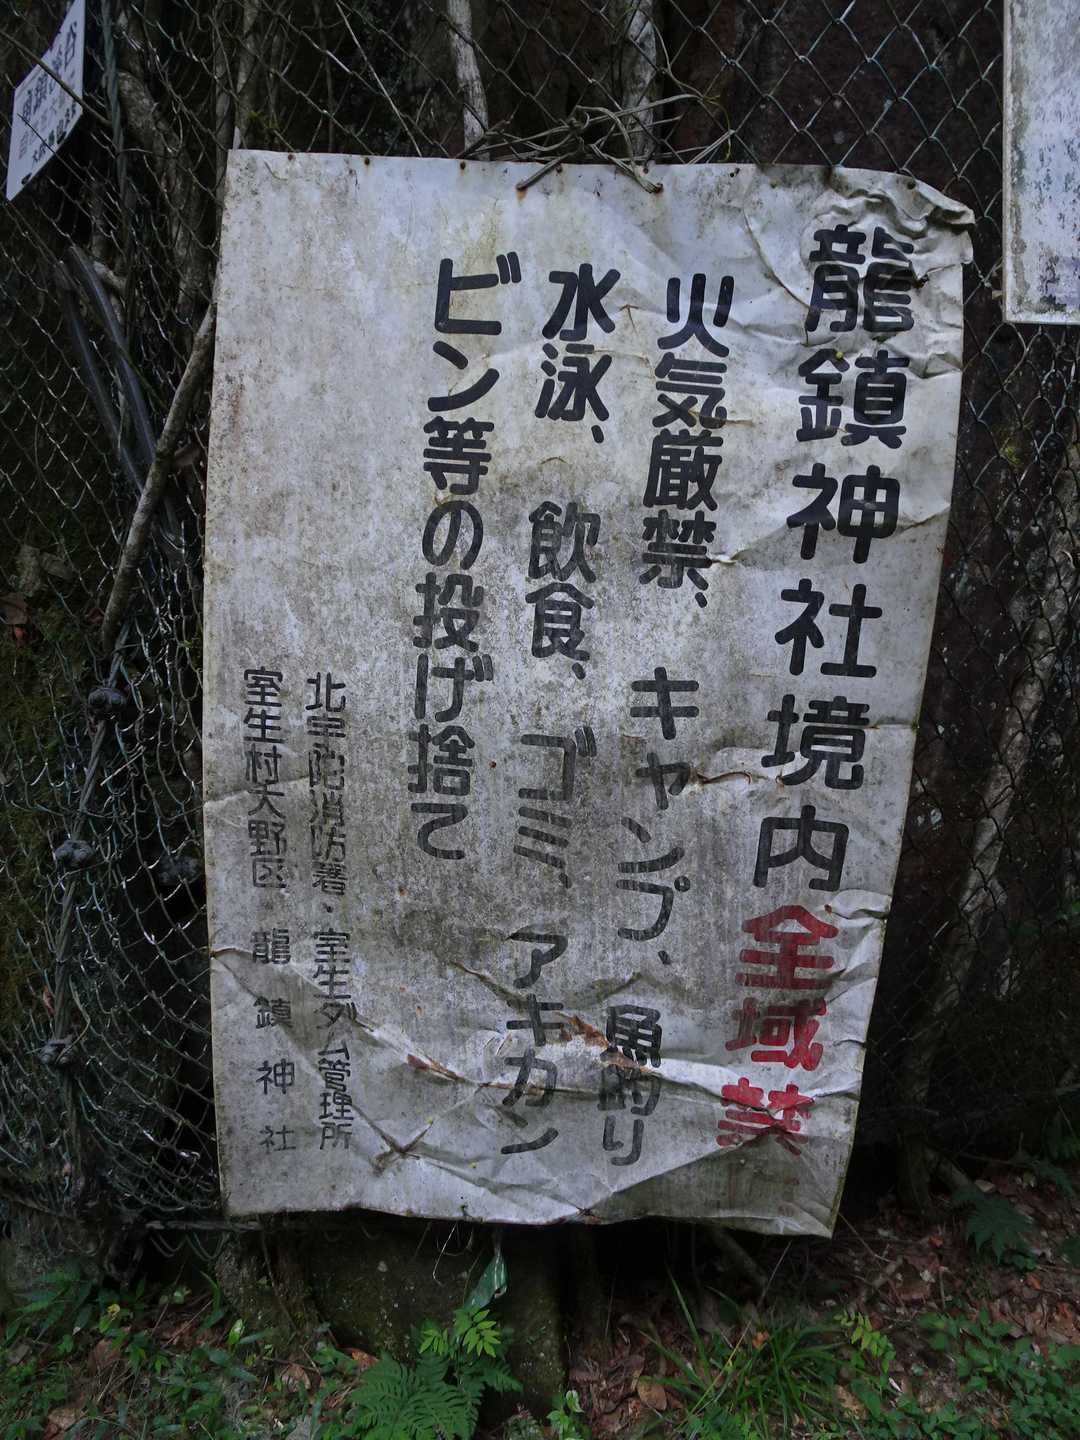 龍鎮神社境内全域禁
火気厳禁、キャンプ、魚釣り
水泳、飲食、ゴミ、アキカン
ビン等の投げ捨て
北宇陀消防署・室生ダム管理所
室生村大野区 龍鎮神社